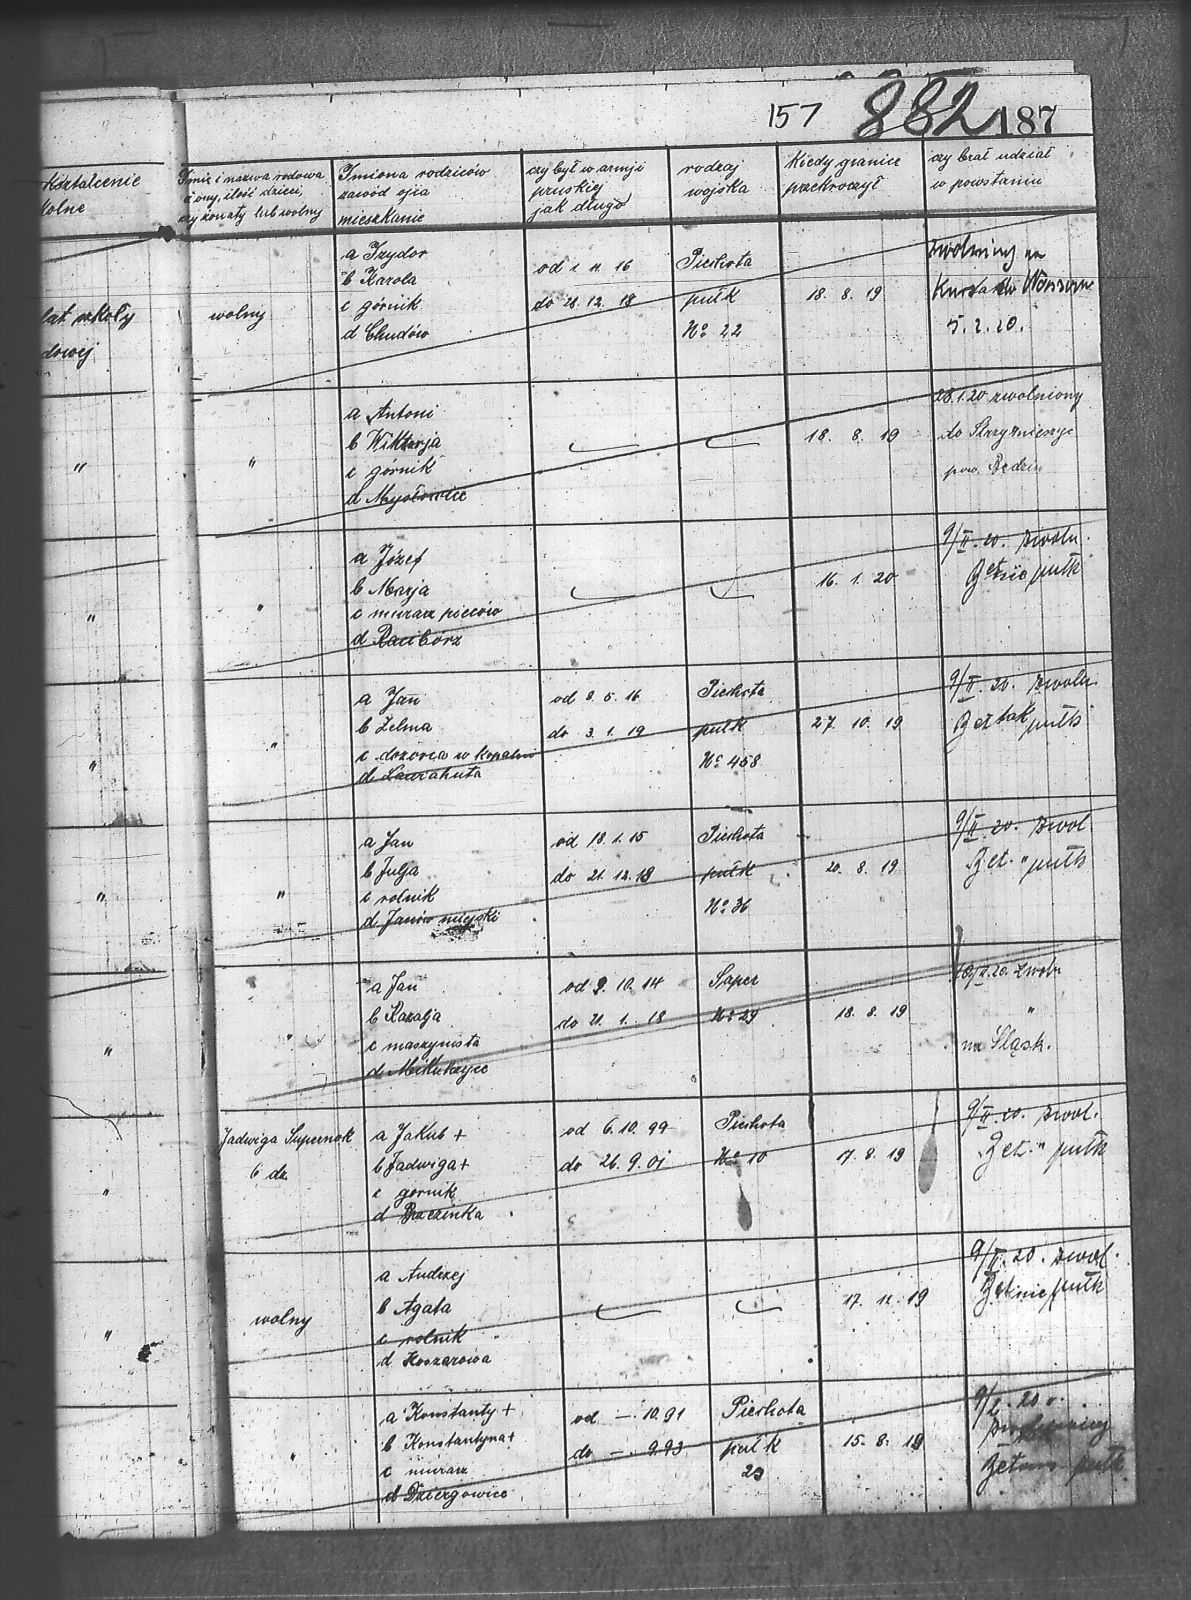 157 882 187
kształcenie
kolne
Imię i nazwa rodowa
żony, ilość dzieci,
czy żonaty lub wolny
Imiona rodziców
zawód ojca
mieszkanie
czy był w armji
pruskiej
jak długo
rodzaj
wojska
Kiedy granicę
przekroczył
czy brał udział
w powstaniu
lat szkoły
dowej
wolny
a Izydor
b Karola
c górnik
d Chudów
od 1. 11. 16
do 21. 12. 18
Piechota
pułk
No 22
18. 8. 19
zwolniony na
5. 2. 20.
"
"
a Antoni
b Wiktorja
c górnik
d Mysłowice
18. 8. 19
28.1.20 zwolniony
do
pow. Będzin
"
"
a Józef
b Marja
c murarz pieców
d Racibórz
16. 1. 20
9/II. 20. zwoln.
pułk
"
"
a Jan
b Zelma
c dozorca w kopalni
d Laurahuta
od 8. 5. 16
do 3. 1. 19
Piechota
pułk
No 458
27. 10. 19
9/II. 20. zwoln.
pułk
"
"
a Jan
b Julja
c rolnik
d Janów miejski
od 18. 1. 15
do 21. 12. 18
Piechota
pułk
No 36
20. 8. 19
9/II. 20. zwol.
Bet. " pułk
"
"
a Jan
b Rozalja
c maszynista
d Mikulczyce
od 9. 10. 14
do 21. 1. 18
Saper
No 29
18. 8. 19
zwoln
"
na Śląsk.
"
Jadwiga Supernok
6 dz.
a Jakub +
b Jadwiga +
c górnik
d Brzezinka
od 6. 10. 99
do 26. 9. 01
Piechota
No 10
17. 8. 19
9/II. 20. zwol.
Bet. " pułk
"
wolny
a Andrzej
b Agata
c rolnik
d Koszarowa
17. 11. 19
9/II. 20. zwol.
pułk
"
a Konstanty +
b Konstantyna +
c murarz
d Dziergowice
od — 10. 91
do — 9. 93
Piechota
pułk
23
15. 8. 19
pułk